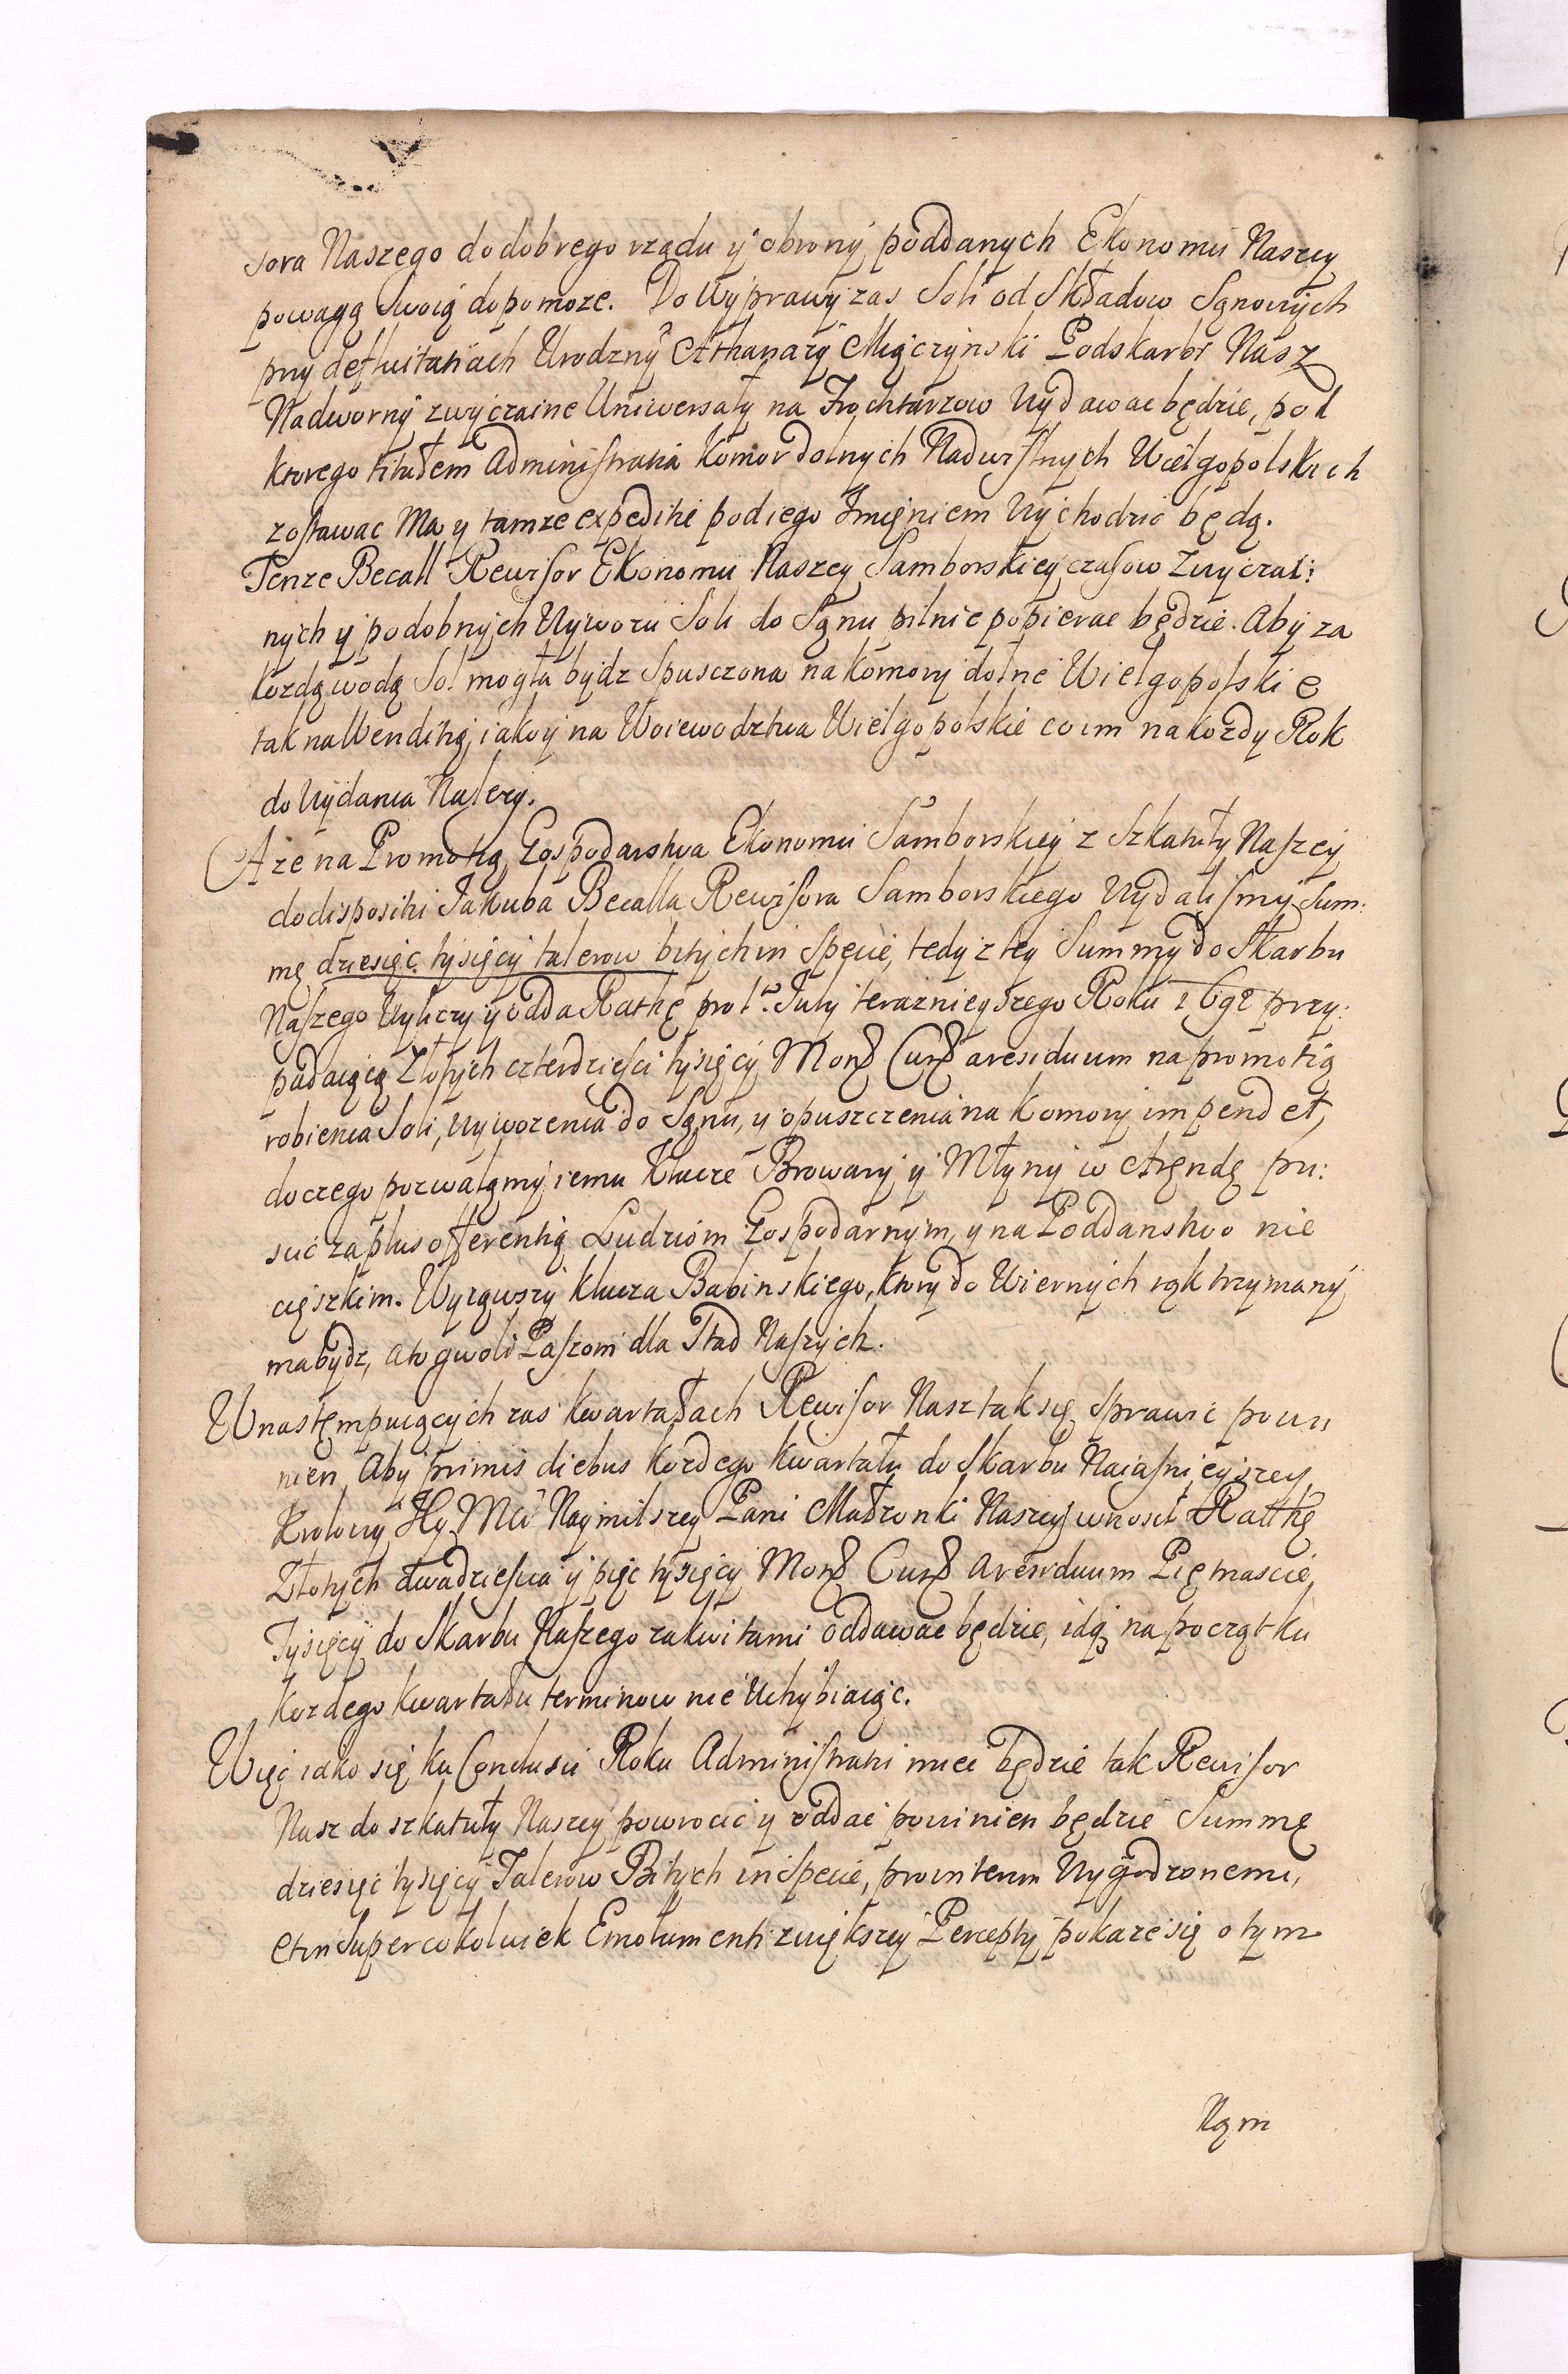 sora Naszego do dobrego rządu y obrony poddanych Ekonomii Naszey
powagą Swoią dopomoze. Do Wyprawy zas Soli od Składow Sąnowych
przy defluitatiach Urodzny Athanazy Miączynski Podskarbi Nasz
Nadworny zwyczaine Uniwersały na Frochtarzow Wydawac będzie, pod
ktorego titułem Administratia Komor dolnych Nadwislnych Wielgopolskich
zostawac Ma y tamze expeditie pod iego Imięniem Wychodzić będą.
Tenze Becall Rewisor Ekonomii Naszey Samborskiey czasow Zwyczai:
nych y podobnych Wywozu Soli do Sąnu pilnie popierac będzie. Aby za
kozdą wodą Sol mogła bydz Spusczona na Komory dolne Wielgopolskie
tak na Venditią, iako y na Woiewodztwa Wielgopolskie co im na kozdy Rok
do Wydania Nalezy.
A ze na Promotią Gospodarstwa Ekonomii Samborskiey z Szkatuły Naszey
do dispositii Jakuba Becalla Rewisora Samborskiego Wydalismy Sum:
mę dziesięc tysięcy talerow bitych in Specie, tedy z tey Summy do Skarbu
Naszego Wyliczy y odda Ratkę pro 1ma July teraznieyszego Roku 1692 przy:
padaiącą Złotych czterdziesci tysięcy Mon Curr a residuum na promotią
robienia Soli, wywozenia do Sąnu, y opuszczenia na Komory impendet,
do czego pozwalamy iemu Klucze Browary y Młyny w Arendę pu:
scić za plus offerentią Ludziom Gospodarnym, y na Poddanstwo nie
cięszkim. Wyiąwszy klucza Babinskiego, ktory do Wiernych rąk trzymany
ma bydz, a to gwoli Paszom dla Stad Naszych.
W nastęmpuiących zas kwartałach Rewisor Nasz tak się Sprawić powi
nien, Aby primis diebus kozdego kwartału do Skarbu Naiasnieyszey
Krolowy Jey Mci Naymilszey Pani Małzonki Naszey wnosił Rattkę
Złotych dwadziescia y pięc tysięcy Mon Curr a residuum Piętnascie
Tysięcy do Skarbu Naszego za kwitami oddawac będzie, idą na początku
kozdego kwartału terminow nie Uchybiaiąc.
Więc iako się ku Conclusii Roku Administratii miec będzie tak Rewisor
Nasz do szkatuły Naszey powrocic y oddac powinien będzie Summę
dziesięć tysięcy Talerow Bitych in Specie, pro interim Wygodzonemi,
et insuper cokolwiek Emolumenti z większey Percepty pokaze się o tym
Nąm